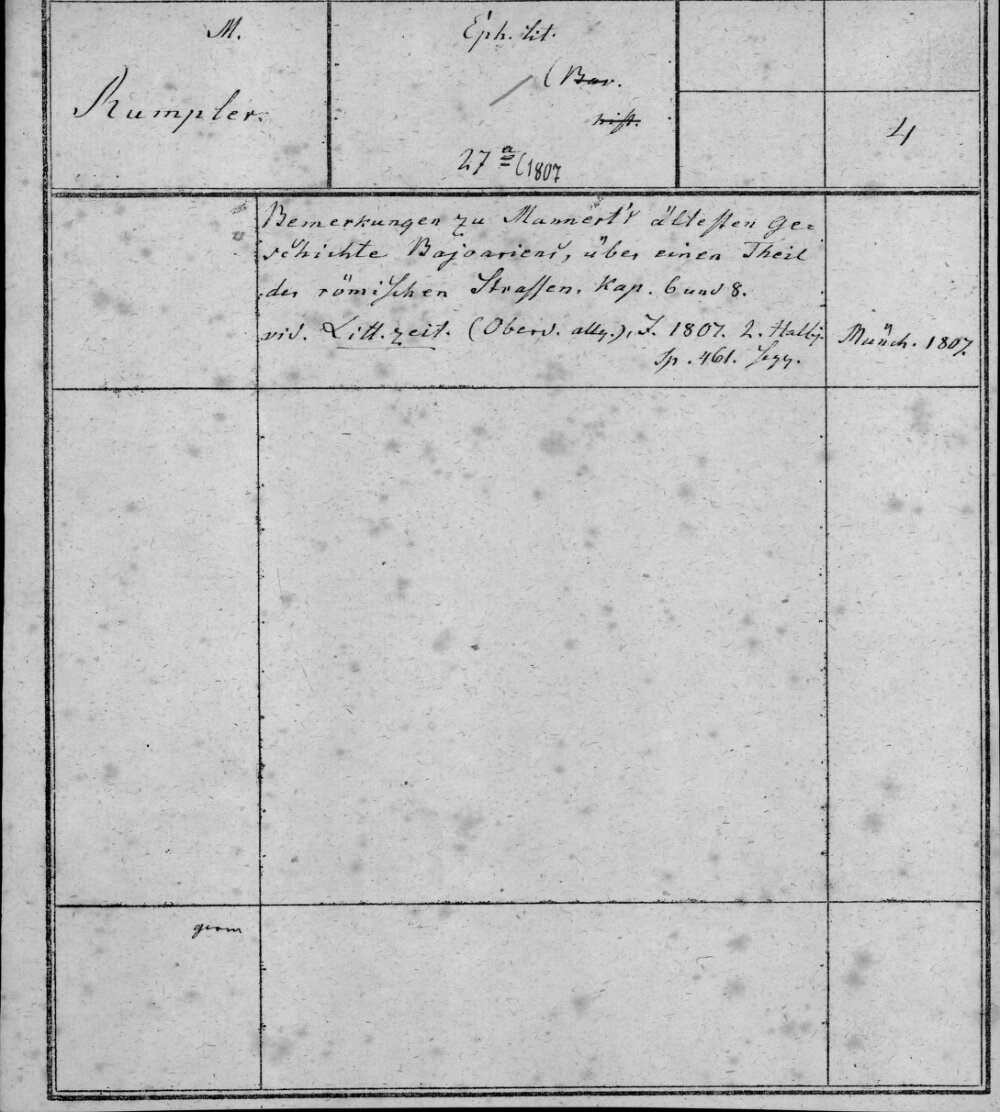 M.
Rumpler.
Eph. lit.
(Bav.
hist.
27 a (1807
4
Bemerkungen zu Mannert's ältesten Ge=
schichte Bajoariens, über einen Theil
der römischen Strassen. Kap. 6 und 8.
vid. Litt. zeit. (Oberd. allg.), J. 1807. 2. Halbj.
Sp. 461. seqq.
Münch. 1807.
germ